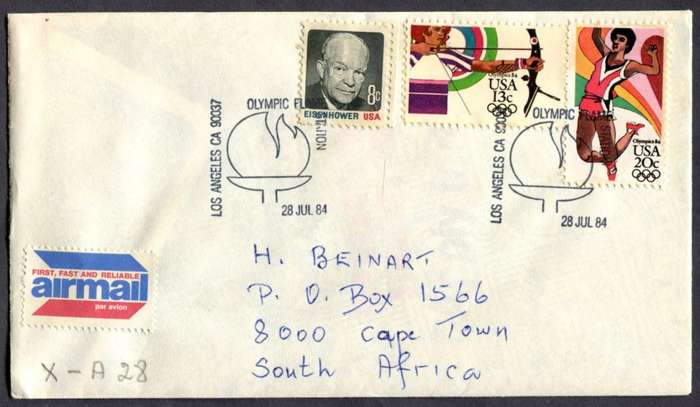 8c
EISENHOWER USA
Olympics 84
USA
13c
Olympics 84
USA
20c
LOS ANGELES CA 90037
OLYMPIC FLAME STATION
28 JUL 84
LOS ANGELES CA 90037
OLYMPIC FLAME STATION
28 JUL 84
FIRST, FAST AND RELIABLE
airmail
par avion
H. BEINART
P. O. Box 1566
8000 Cape Town
South Africa
X-A 28